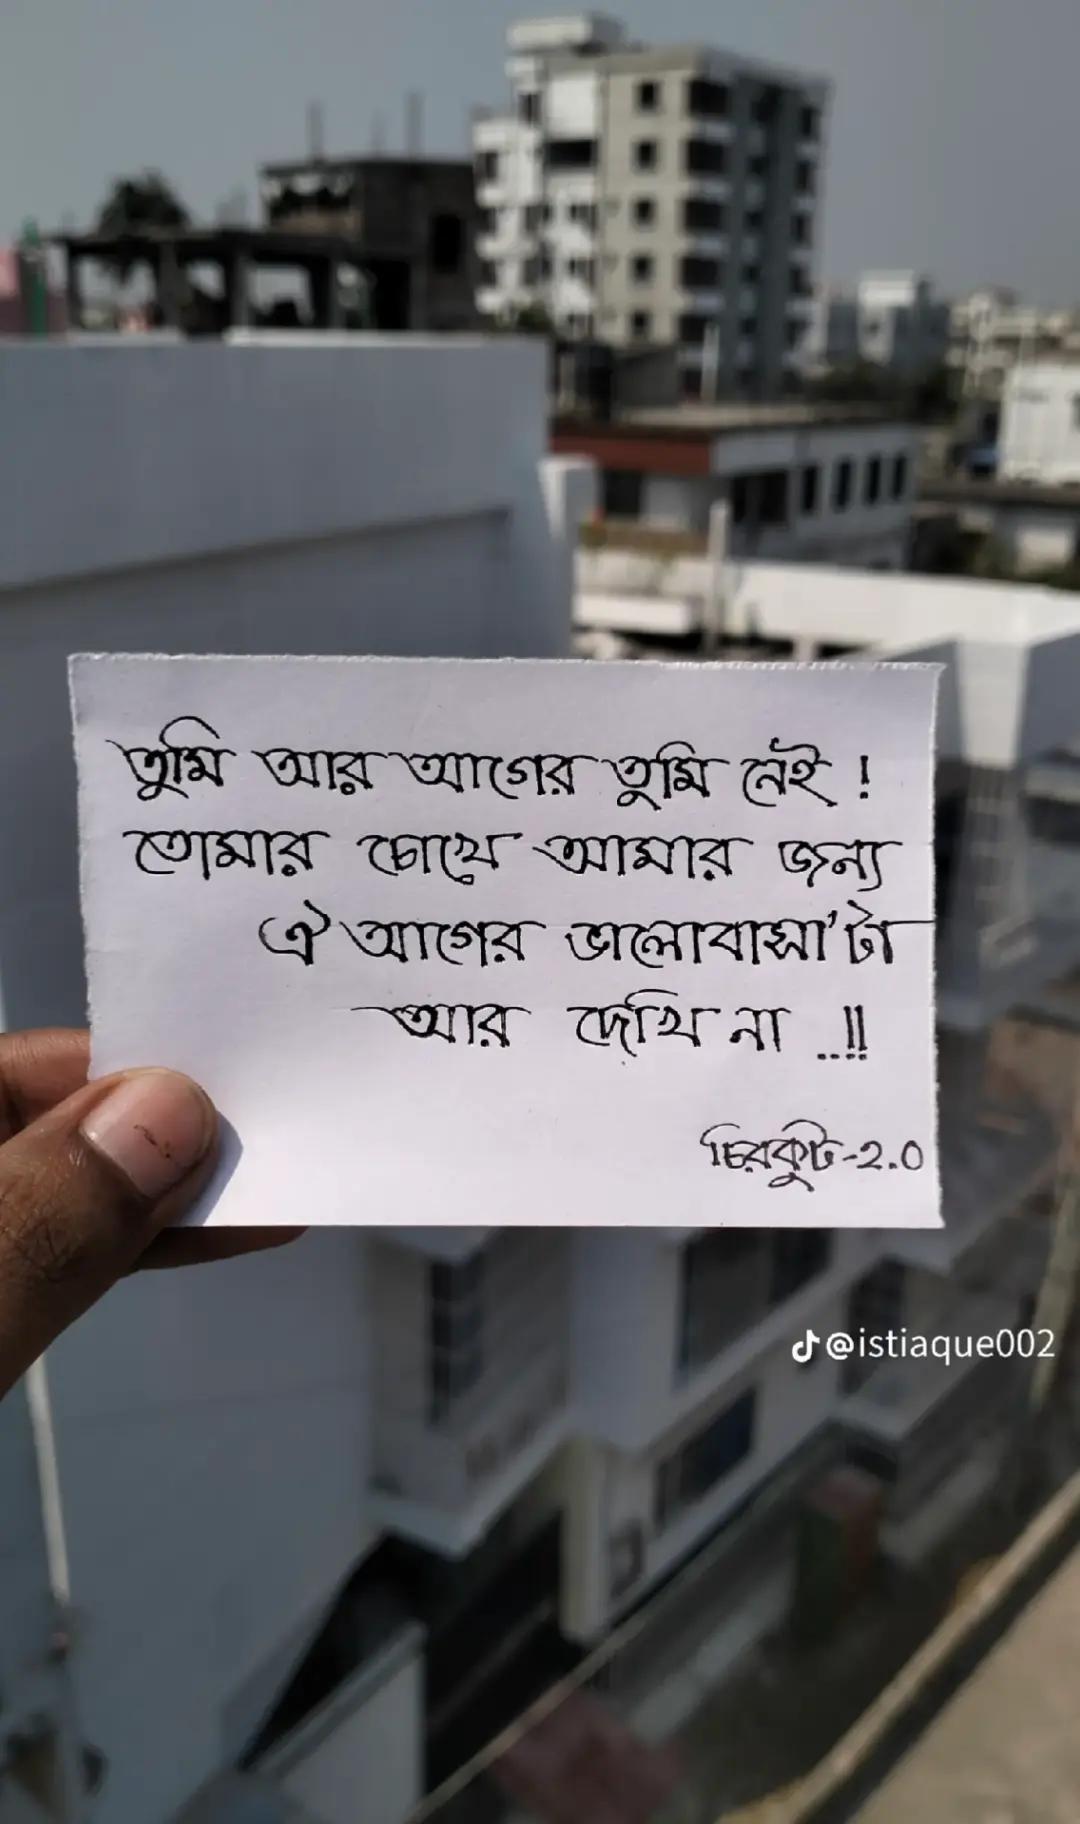 তুমি আর আগের তুমি নেই !
তোমার চোখে আমার জন্য
ঐ আগের ভালোবাসা'টা
আর দেখি না ..!!
চিরকুট-2.0
@istiaque002